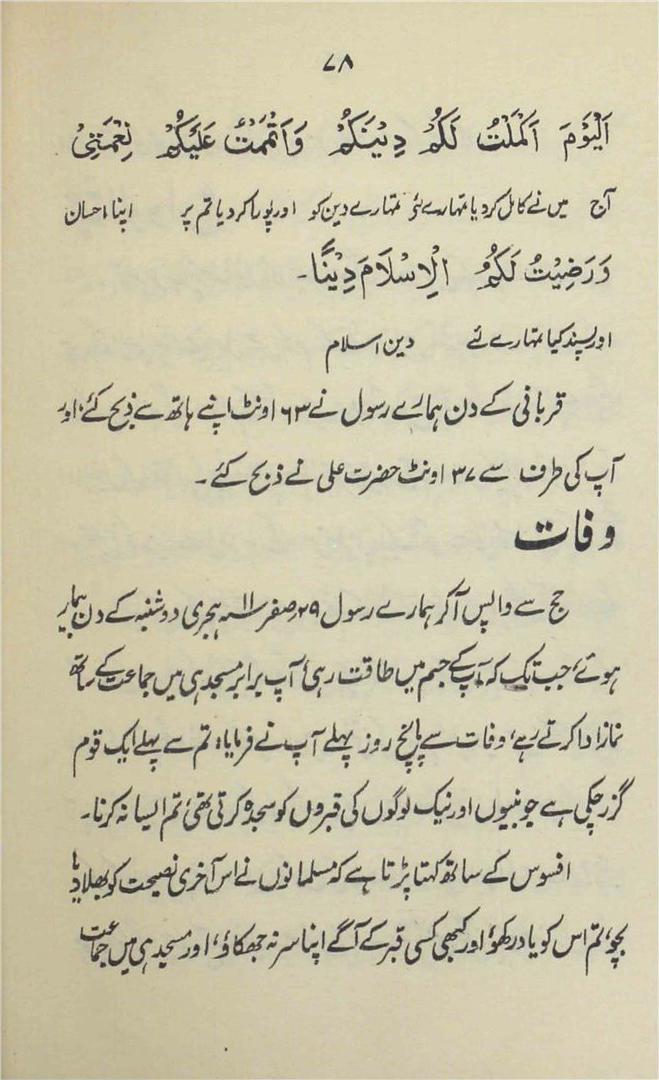 ۷۸
اَلْیَوْمَ اَکْمَلْتُ لَکُمْ دِیْنَکُمْ وَاَتْمَمْتُ عَلَیْکُمْ نِعْمَتِیْ
آج میں نے کامل کردیا تمہارے لئے تمہارے دین کو اور پورا کردیا تم پر اپنا احسان
وَرَضِیْتُ لَکُمُ الْاِسْلَامَ دِیْنًا۔
اور پسند کیا تمہارے لئے دین اسلام
قربانی کے دن ہمارے رسول نے ۶۳ اونٹ اپنے ہاتھ سے ذبح کئے، اور
آپ کی طرف سے ۳۷ اونٹ حضرت علی نے ذبح کئے۔
وفات
حج سے واپس آکر ہمارے رسول ۲۹ صفر ۱۱؁ ہجری دوشنبہ کے دن بیمار
ہوئے، جب تک کہ آپ کے جسم میں طاقت رہی، آپ برابر مسجد ہی میں جماعت کے ساتھ
نماز ادا کرتے رہے، وفات سے پانچ روز پہلے آپ نے فرمایا، تم سے پہلے ایک قوم
گزر چکی ہے جو نبیوں اور نیک لوگوں کی قبروں کو سجدہ کرتی تھی، تم ایسا نہ کرنا۔
افسوس کے ساتھ کہنا پڑتا ہے کہ مسلمانوں نے اس آخری نصیحت کو بھلا دیا
بچو، تم اس کو یاد رکھو، اور کبھی کسی قبر کے آگے اپنا سر نہ جھکاؤ، اور مسجد ہی میں جماعت